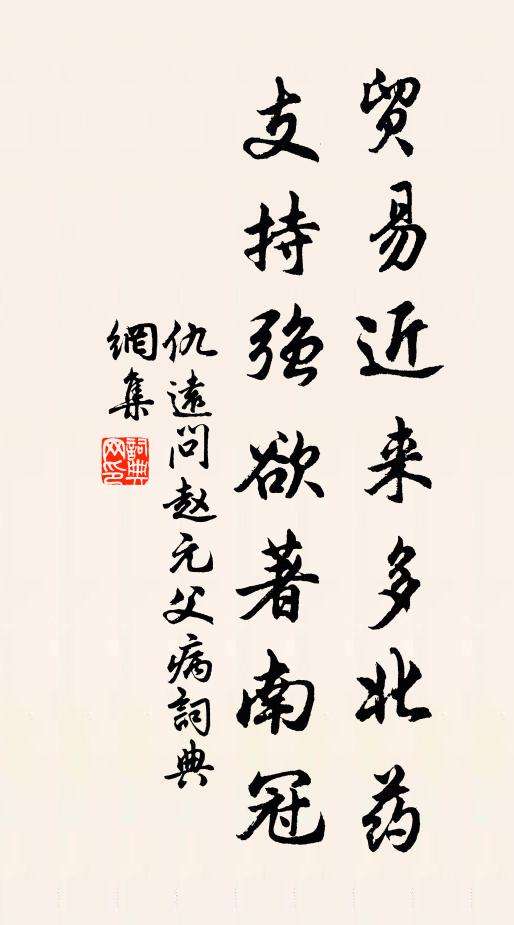 贸易近来多北药
支持強欲著南冠
仇遠问赵元父病詞典
網集
詞典网印